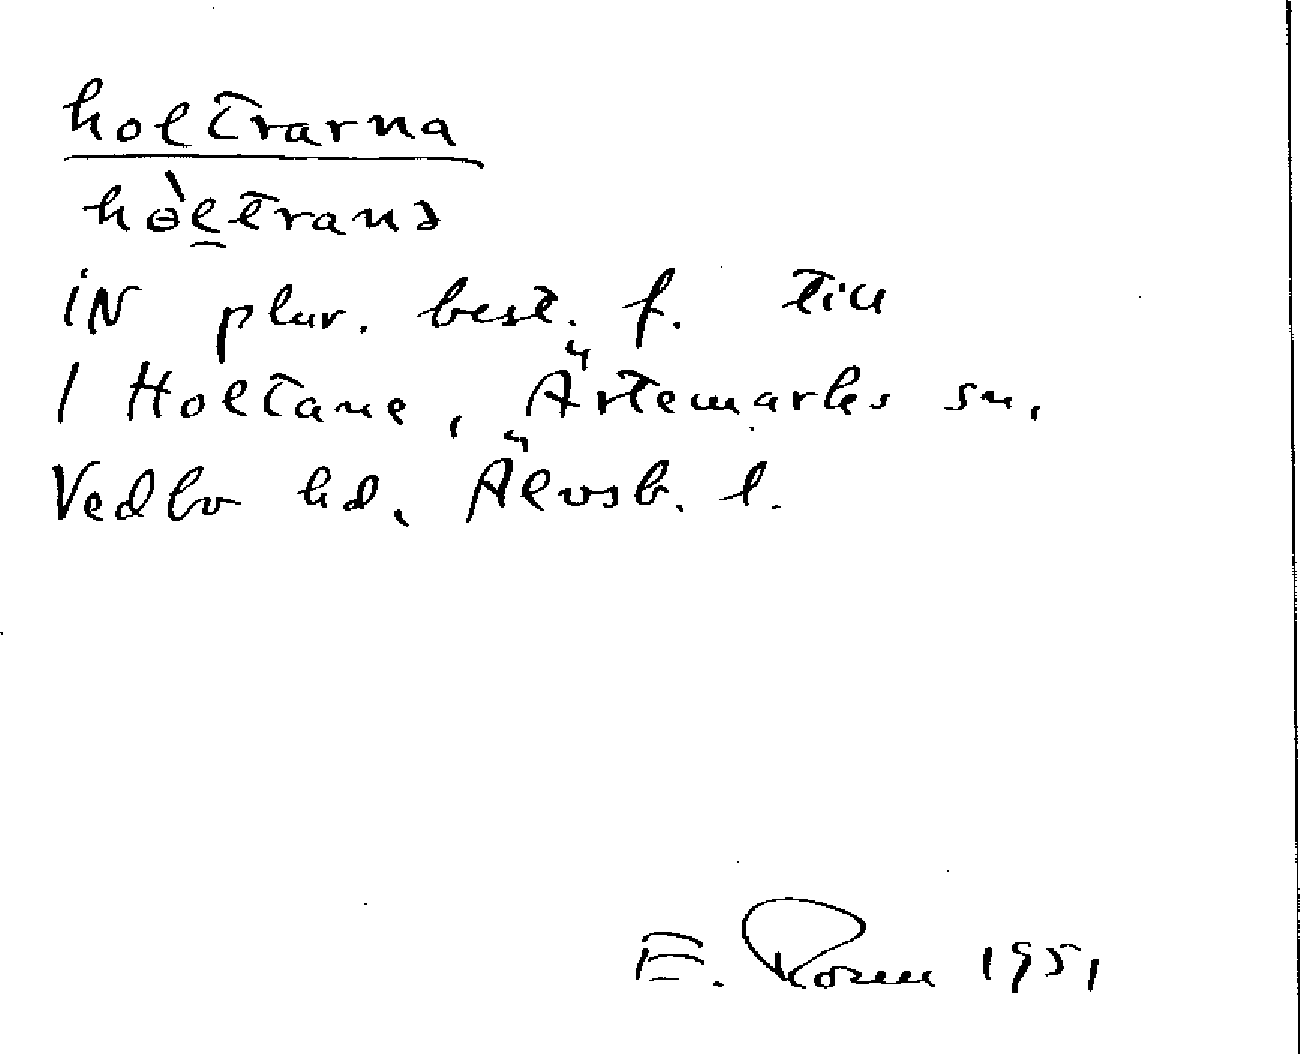 holtrarna
hòl̲trans
iN plur. best. f. till
1 Holtane, Ärtemarks sn,
Vedbo hd, Älvsb. l.
E. Rosell 1951